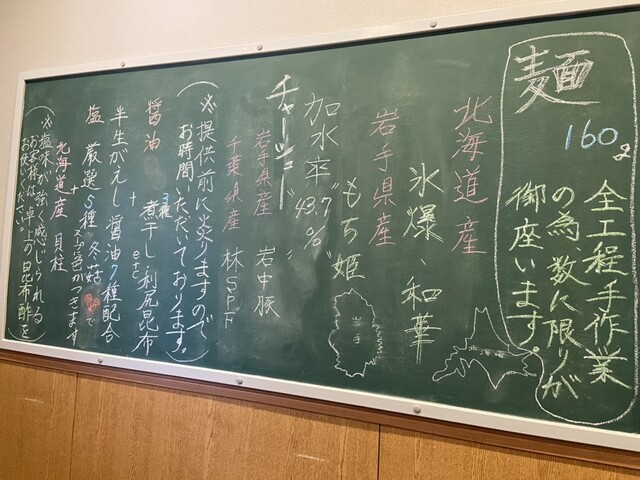 麺 160g
全工程手作業
の為、数に限りが
御座います。
北海道産
氷爆、和華
岩手県産
"もち姫"
岩手
加水率"43.7%"
チャーシュー
岩手県産 岩中豚
千葉県産 林SPF
(※提供前に炙りますので
お時間いただいております。)
醤油 3種煮干し利尻昆布
etc
+
半生がえし醤油7種配合
塩 厳選5種 冬菇
で
色がつきます
+
北海道産 貝柱
(※塩味が強く感じられる
お客様は、卓上の昆布酢を
お使いください。)